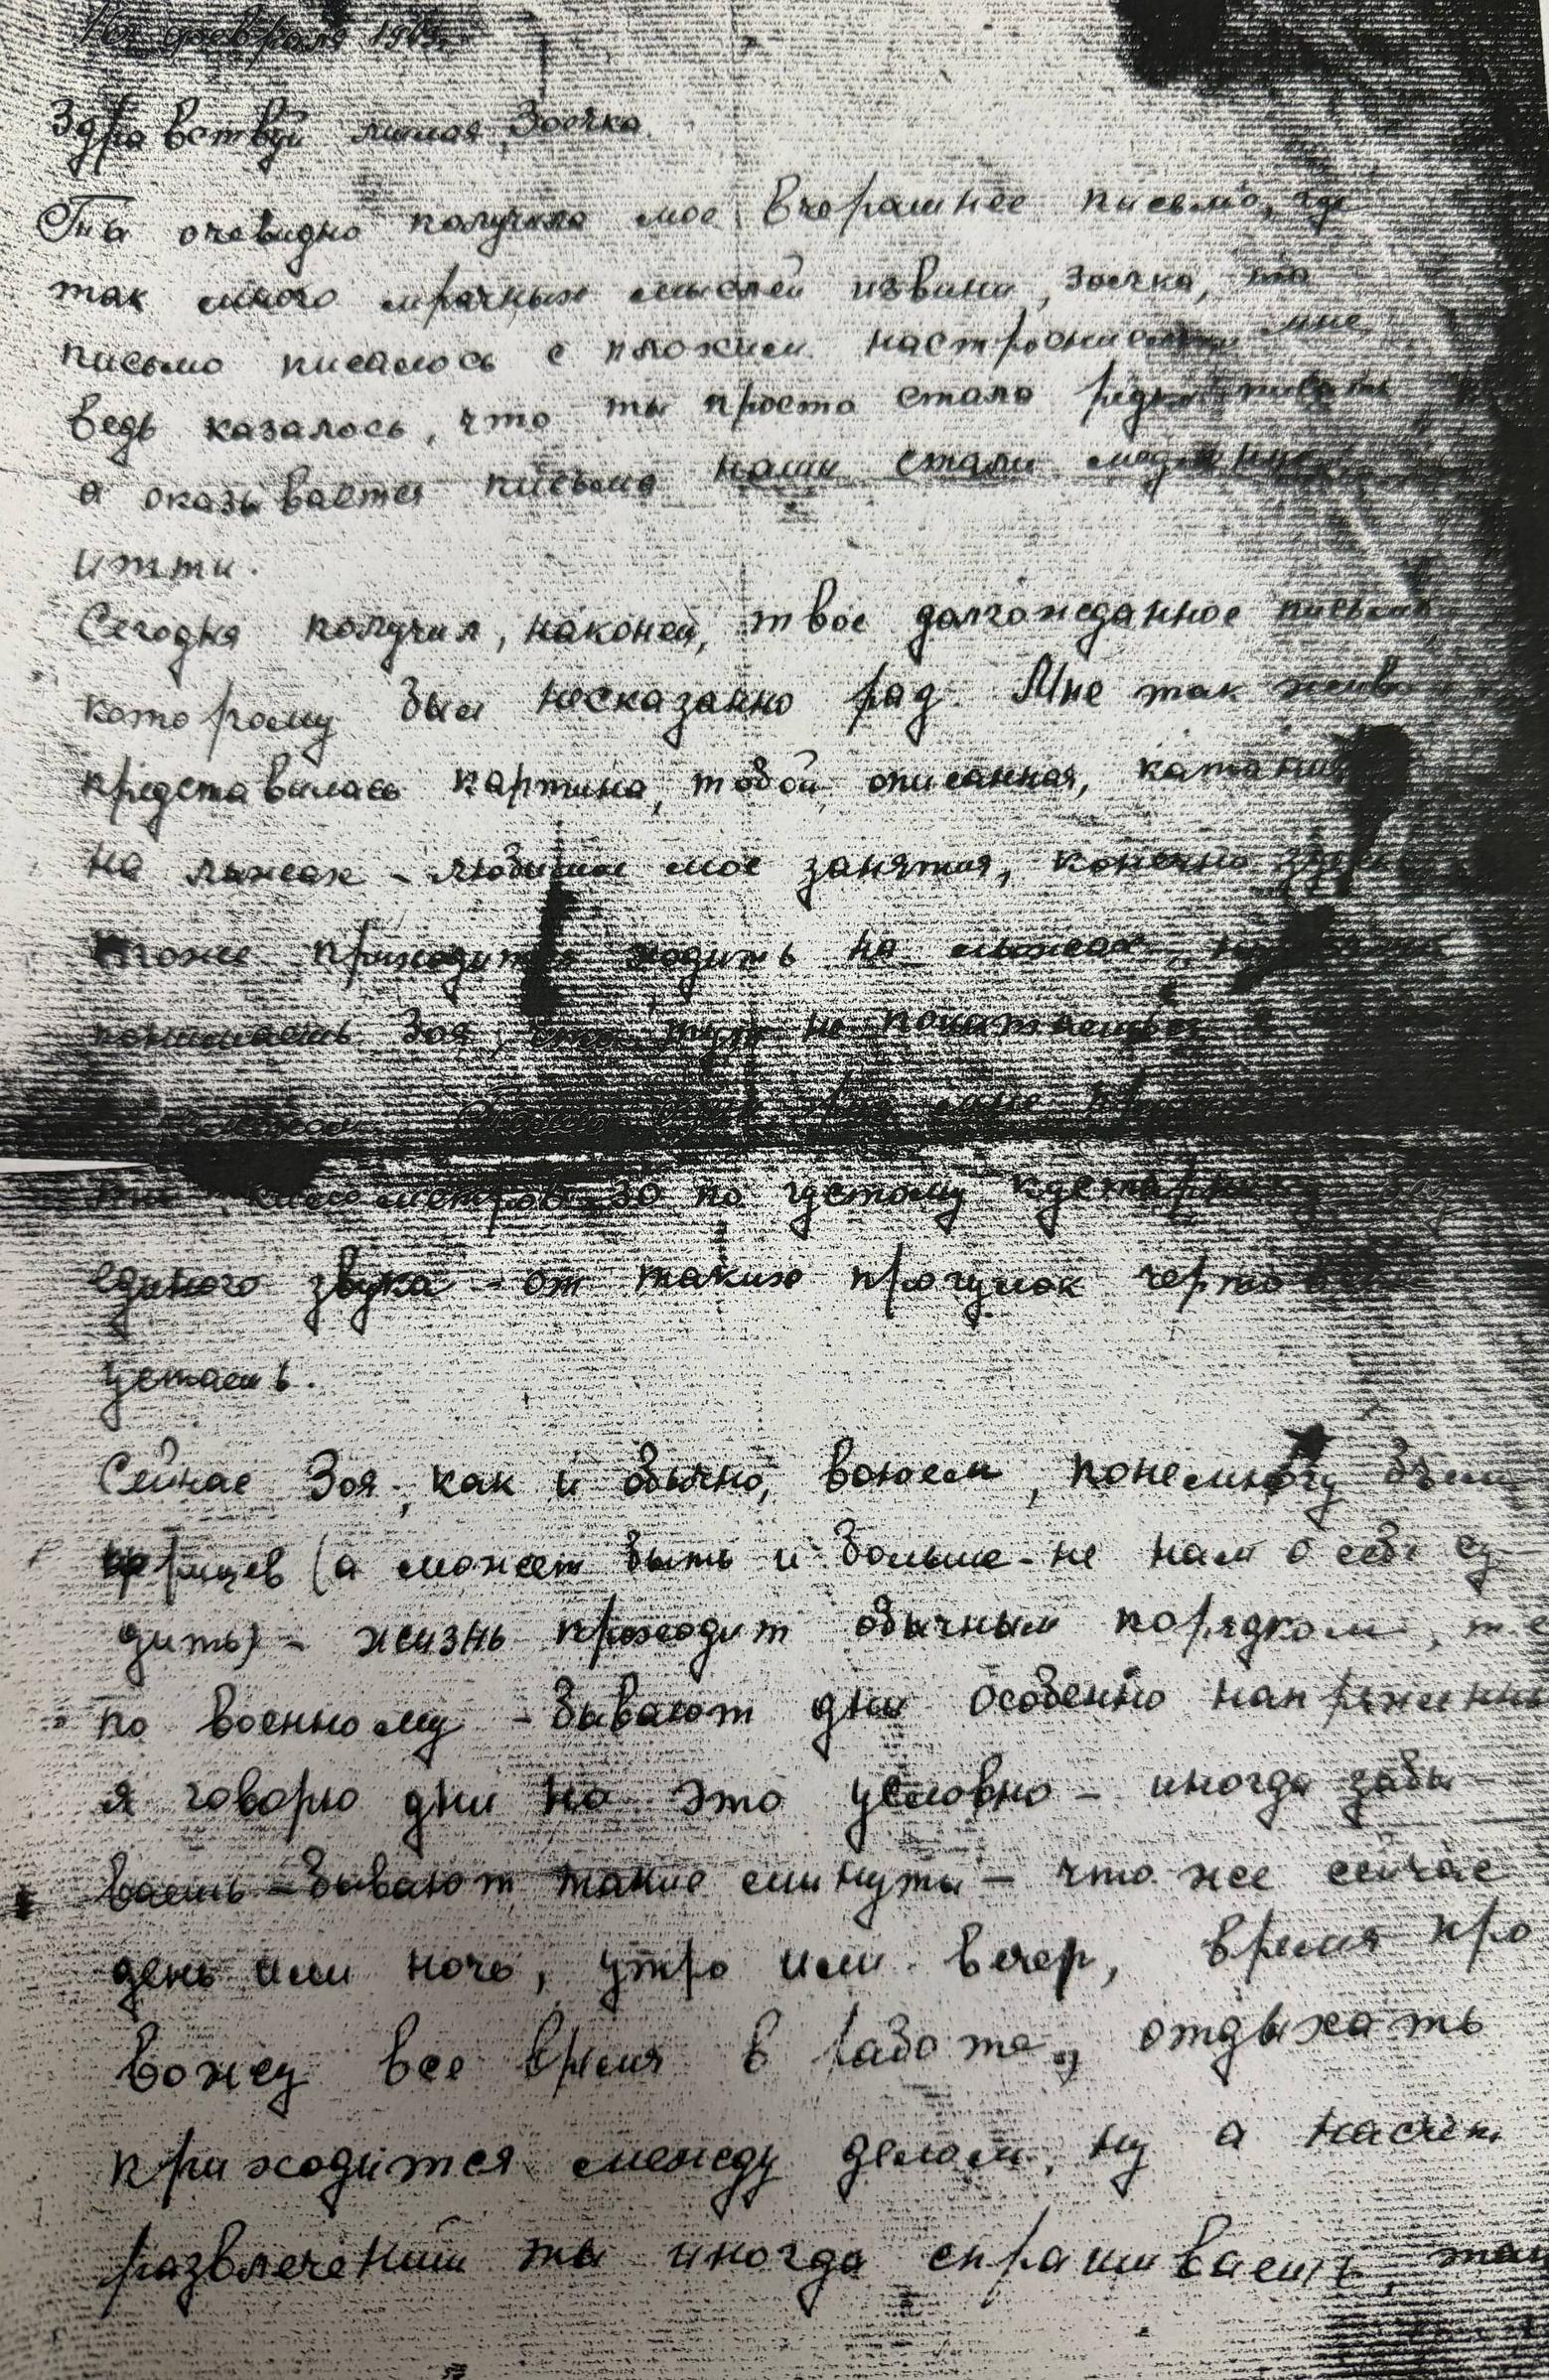 февраля 194
Здравствуй милая Зоечка.
Ты очевидно получила мое вчерашнее письмо, где
так много мрачных мыслей извини, Зоечка, то
письмо писалось с плохим настроением мне
ведь казалось, что ты просто стала редко писать,
а оказывается письма наши стали медленнее
итти.
Сегодня получил, наконец, твое долгожданное письмо,
которому был несказанно рад. Мне так живо
представилась картина, тобой описанная, катания
на лыжах - любимое мое занятия, конечно здесь
тоже приходится ходить на лыжах,
понимаешь Зоя, тут не покатаешься

километров 30 по густому кустарнику
единого звука - от таких прогулок черто
устаешь.
Сейчас Зоя, как и обычно, воюем, понемногу бьем
фрицев (а может быть и больше - не нам о себе су-
дить) - жизнь проходит обычным порядком, т.е
по военному - бывают дни особенно напряженны
я говорю дни но это условно - иногда забы-
ваешь - бывают такие минуты - что же сейчас
день или ночь, утро или вечер, время про
вожу все время в работе, отдыхать
приходится между делом, ну а насчет
развлечений ты иногда спрашиваешь, так